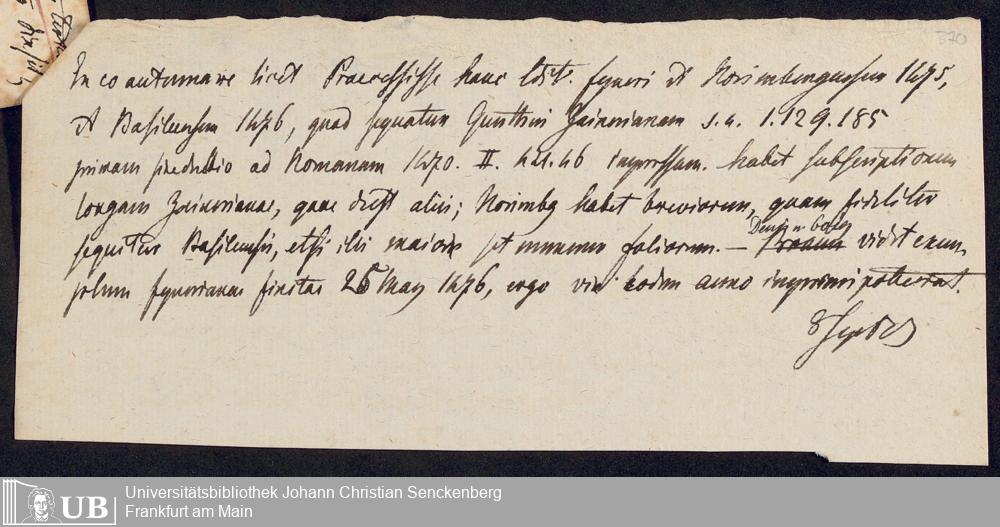 370
In eo autumare licet Praecessisse hanc Edit. fyneri et Norimbergensem 1475,
et Basileensem 1476, quod sequatur Gunthri Zainerianam s.a. 1.129.185
primam ad Romanam 1470. II. 421.46 impressam. habet subscriptionem
longam Zainerianae, quae deest alii; Norimbg habet breviorem, quam fideliter
sequitur Basileensis, etsi illi maior sit numerus foliorum. — vidit exem
plum fynerianae finitae 25 May 1476, ergo vix eodem anno imprimi potterat.
8 Sept
Universitätsbibliothek Johann Christian Senckenberg
Frankfurt am Main
UB